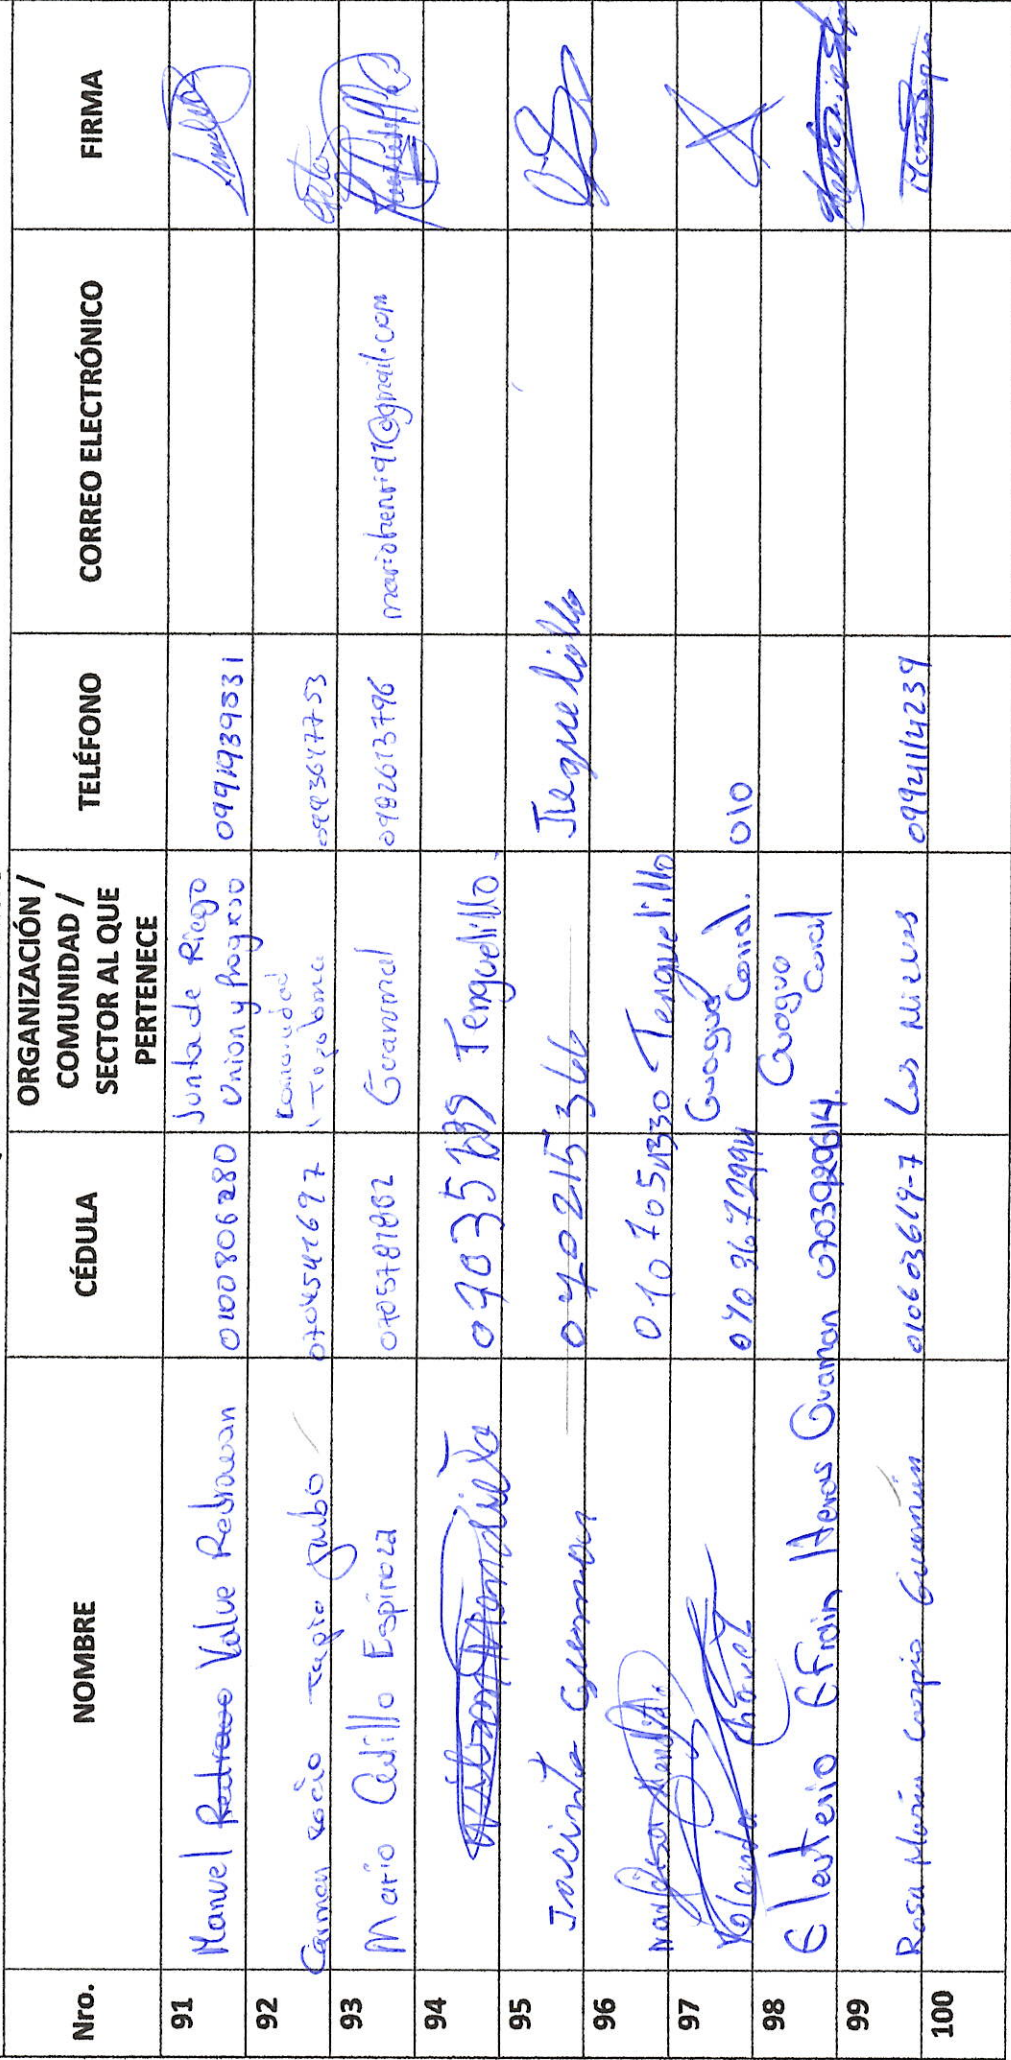 Nro. NOMBRE CÉDULA ORGANIZACIÓN / COMUNIDAD / SECTOR AL QUE PERTENECE TELÉFONO CORREO ELECTRÓNICO FIRMA
91 Manuel Valve Redrovan 0100806280 Junta de Riego Union y Progreso
92 Carmen Rocio Tapia 0704541697 Comunidad Topoloma 0993647753
93 Mario Cedillo Espinoza 0705781862 Guanacal 0982613796 mariohenri97@gmail.com
94 Mendieta Tenguelillo.
95 Jacinto Guaman 070215366 Tenguelillo
96 0107051330 Tenguelillo
97 Yolanda Chavez 0703672994 Guagua Corral. 010
98 Eleuterio Efrain Heras Guaman 0703920614. Guagua Corral
99 Rosa Maria Carpio Guamán 010603619-7 Las Nieves 0994114239
100